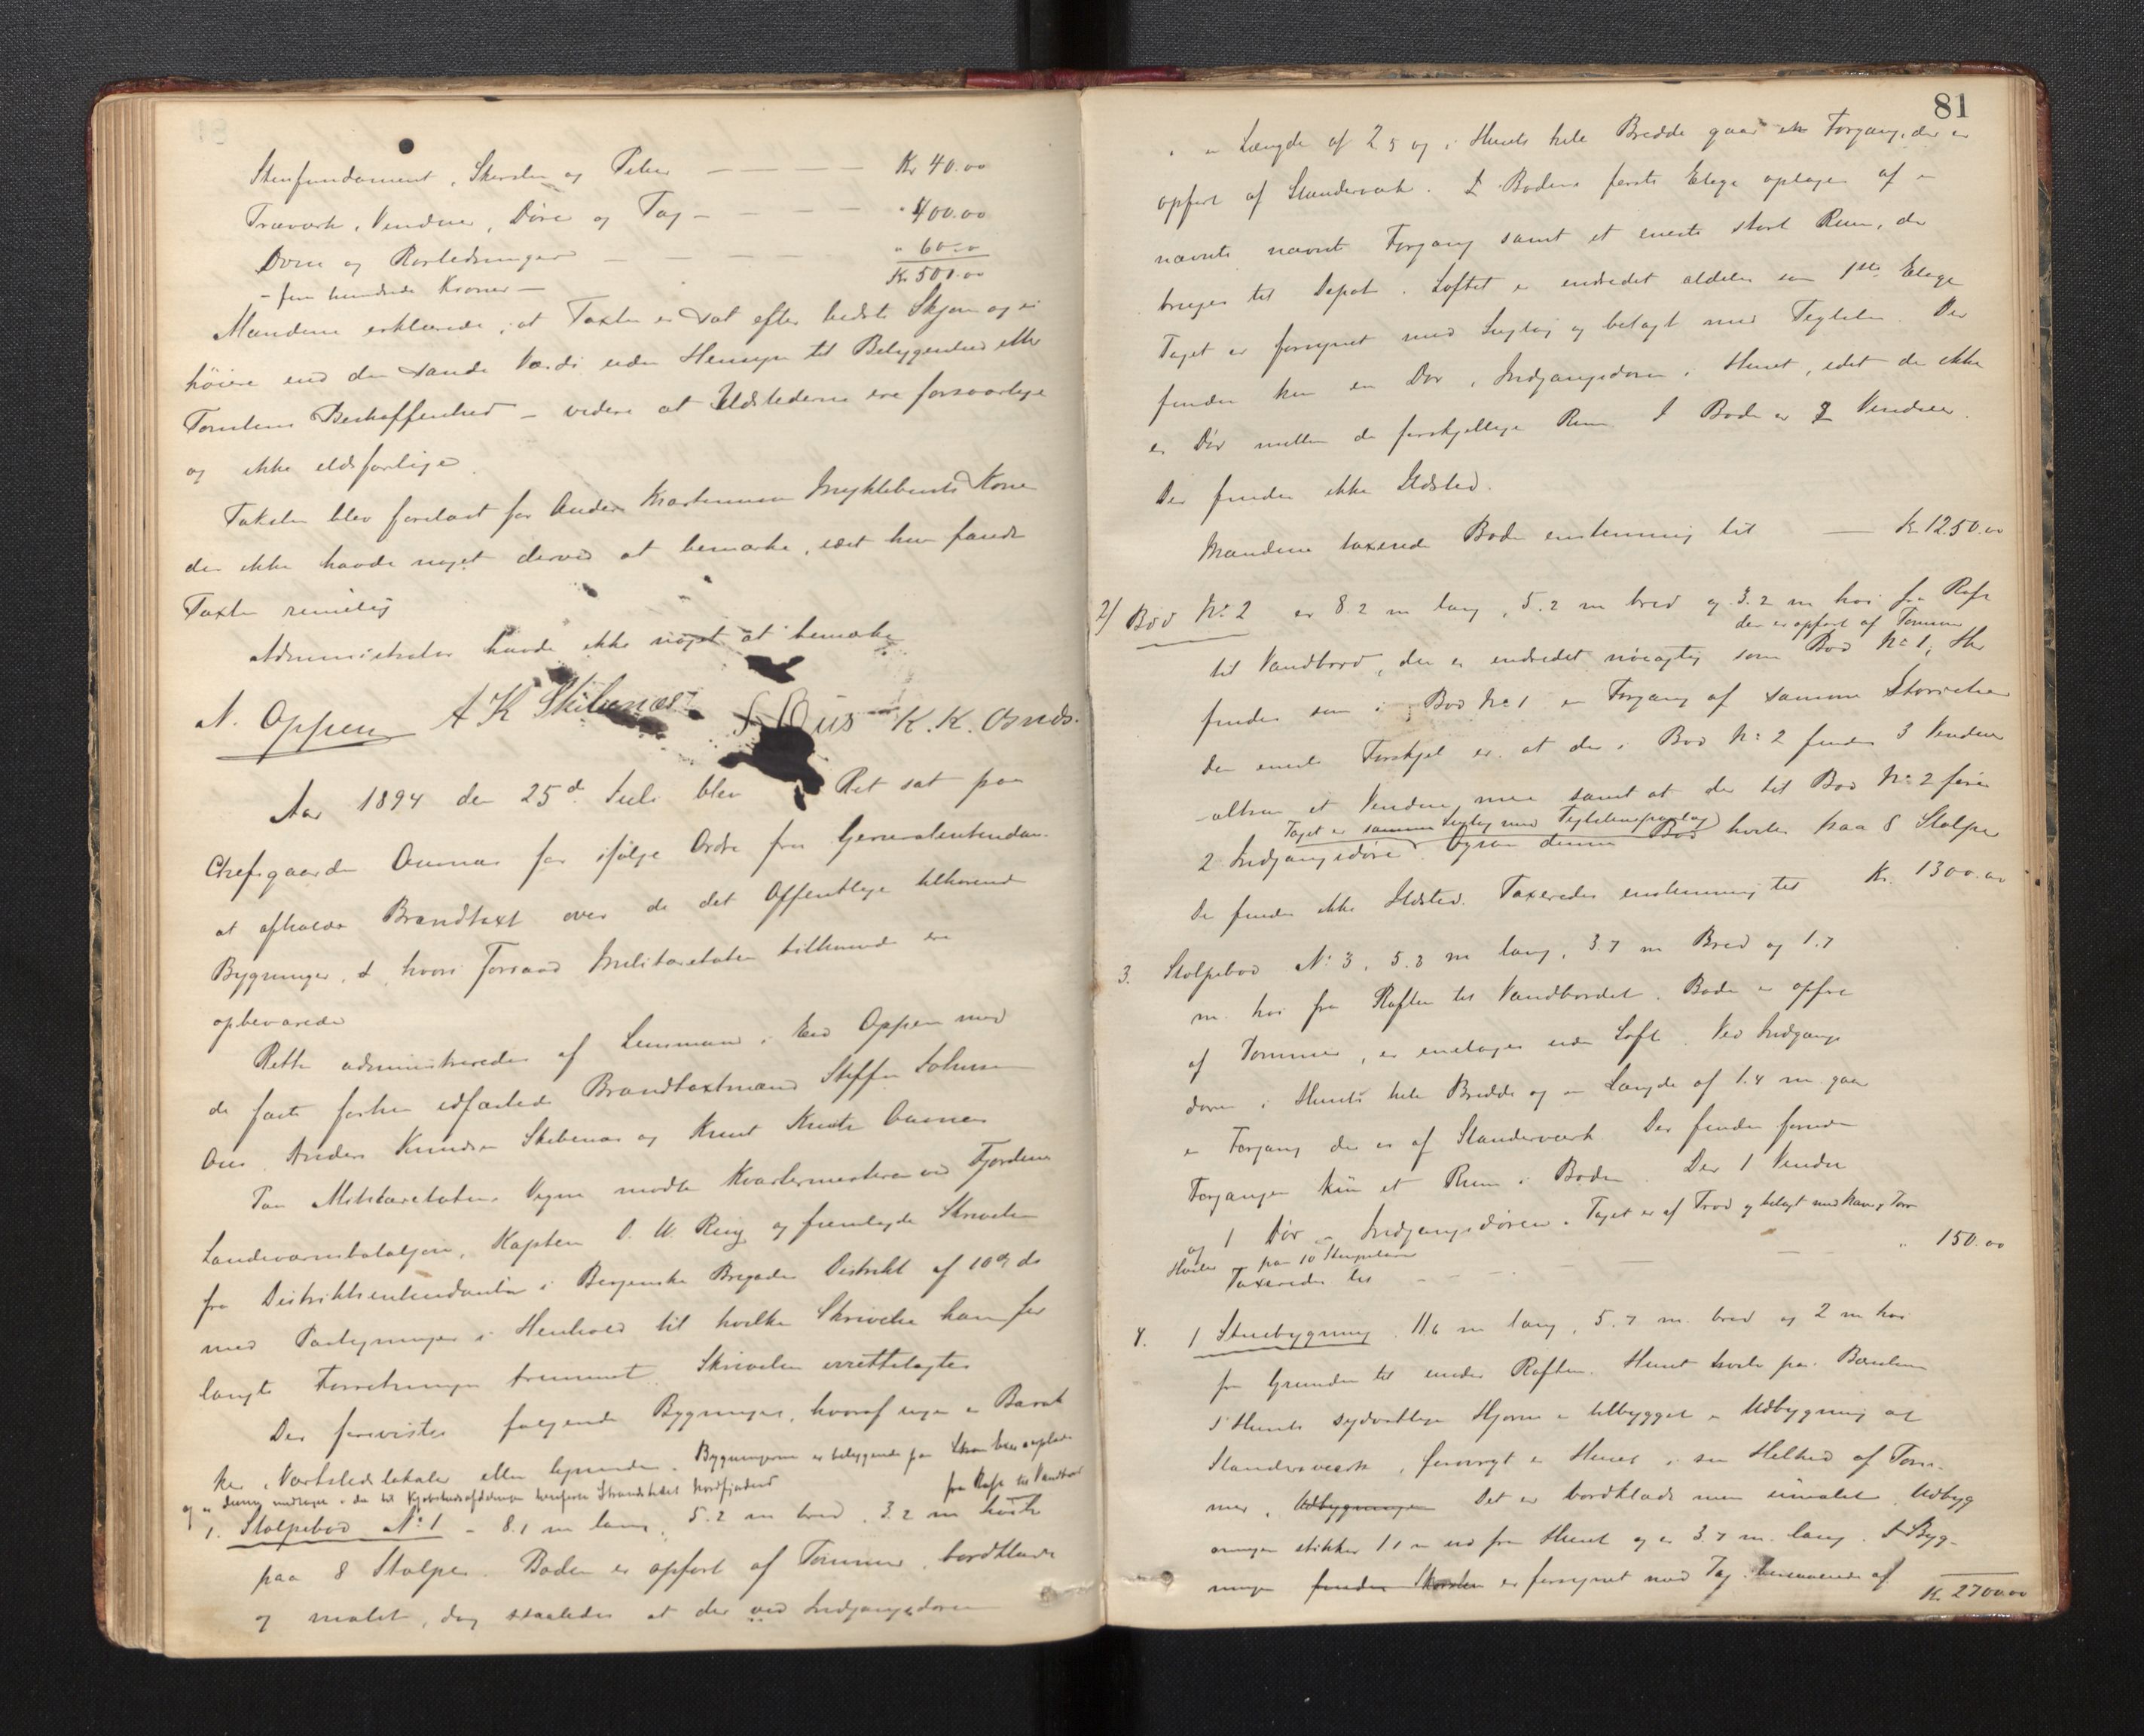 Stenfundament, Skorsten og Peber — — — — Kr 40.00
Træværk, Vinduer, Døre og Tag — — — — " 400.00
Ovne og Rørledninger — — — — " 60.00
Kr 500.00
- fem hundrede Kroner -
Mændene erklærede, at Taxten er sat efter bedste Skjøn og ei
høiere end den sande Værdi uden Hensyn til Bebyggenhed eller
Tomtens Beskaffenhed - videre at Ildstederne ere forsvarlige
og ikke ildsfarlige.
Taksten blev forelæst for Anders Mortensen Myklebusts Kone
der ikke havde noget derved at bemærke, idet hun fandt
Taxten rimelig
Administrator havde ikke noget at bemærke
N. Oppen A K Skibenæs K. K. Osnæs.
Aar 1894 den 25de Juli blev Ret sat paa
Chefsgaarden for ifølge Ordre fra Generalintendan-
at afholde Brandtaxt over de det Offentlige tilhørende
Bygninger, hvori Forraad Militæretaten tilhørende er
opbevarede
Retten administreredes af Lensmand i Eid Oppen med
de faste forhen edfæstede Brandtaxtmænd Steffen Johnsen
Anders Knudsen Skibenæs og Knut Knutsen
Paa Militæretatens Vegne mødte Kvartermesteren ved Fjordenes
Landeværnsbataljon, Kaptein O. W. og fremlagde Skrivelse
fra Distriktsintendanten i Bergenske Brigades Distrikt af 10de ds
med Paategninger i Henhold til hvilken Skrivelse han for-
langte Forretningen fremmet. Skrivelsen irettelagtes
Der forevistes følgende Bygninger, hvoraf ingen er Barak
ker, Værkstedslokaler eller lignende. Bygningerne er beliggende paa
og
1. Stolpebod No 1 - 8.1 m lang, 5.2 m bred, 3.2 m fra Raft til Vandbord
paa 8 Stolper. Boden er opført af Tømmer, bordklædt
og malet, dog saaledes at der ved Indgangsdøren
81
i en Længde af 2.5 og i Husets hele Bredde gaar en Forgang, der er
opført af Standerværk. Bodens første Etage optages af en
nævnte nævnt Forgang samt et eneste stort Rum, der
bruges til Depot. Loftet er indredet aldeles som 1ste Etage
Taget er forsynet med Sugtag og belagt med Teglsten. Der
findes kun en Dør, Indgangsdøren i Huset, idet der ikke
er Dør mellem de forskjellige Rum. I Boden er 2 Vinduer.
Der findes ikke Ildsted.
Mændene taxerede Boden enstemmig til — Kr 1250.00
2) Bod No 2 er 8.2 m lang, 5.2 m bred og 3.2 m høi fra Raft
der er opført af Tømmer
til Vandbord, den er indredet nøiagtig som Bod No 1. Her
findes som i Bod No 1 en Forgang af samme Størrelse
den eneste Forskjel er at der i Bod No 2 findes 3 Vinduer
altsaa et Vindue mere samt at der til Bod No 2 fører
Taget er samme Sugtag med Teglstenspaalæg
2 Indgangsdøre. Ogsaa denne Bod hviler paa 8 Stolper
Der findes ikke Ildsted. Taxeredes enstemmig til Kr. 1300.00
3. Stolpebod No 3, 5.3 m lang, 3.7 m Bred og 1.7
m. høi fra Raften til Vandbordet. Boden er opført
af Tømmer, er enetages uden Loft. Ved Indgangs
døren i Husets hele Bredde og en Længde af 1.4 m gaar
en Forgang der er af Standerværk. Der findes foruden
Forgangen kun et Rum i Boden. Der 1 Vindue
og 1 Dør - Indgangsdøren. Taget er af Trod og belagt med Næver og Torv
Hviler paa 10
Taxeredes til — — — " 150.00
4. 1 Stuebygning. 11.6 m lang, 5.7 m. bred og 2 m høi
fra Grunden til under Raften. Huset hviler paa
I Husets sydvestlige Hjørne er tilbygget en Udbygning af
Standerværk, forøvrigt er Huset i sin Helhed af Tøm-
mer, Udbygningen Det er bordklædt men umalet. Udbyg
ningen stikker 1.1 m ud fra Huset og er 3.7 m. lang. I Byg-
ningen findes Skorsten er forsynet med Tag bestaaende af
Kr. 2700.00